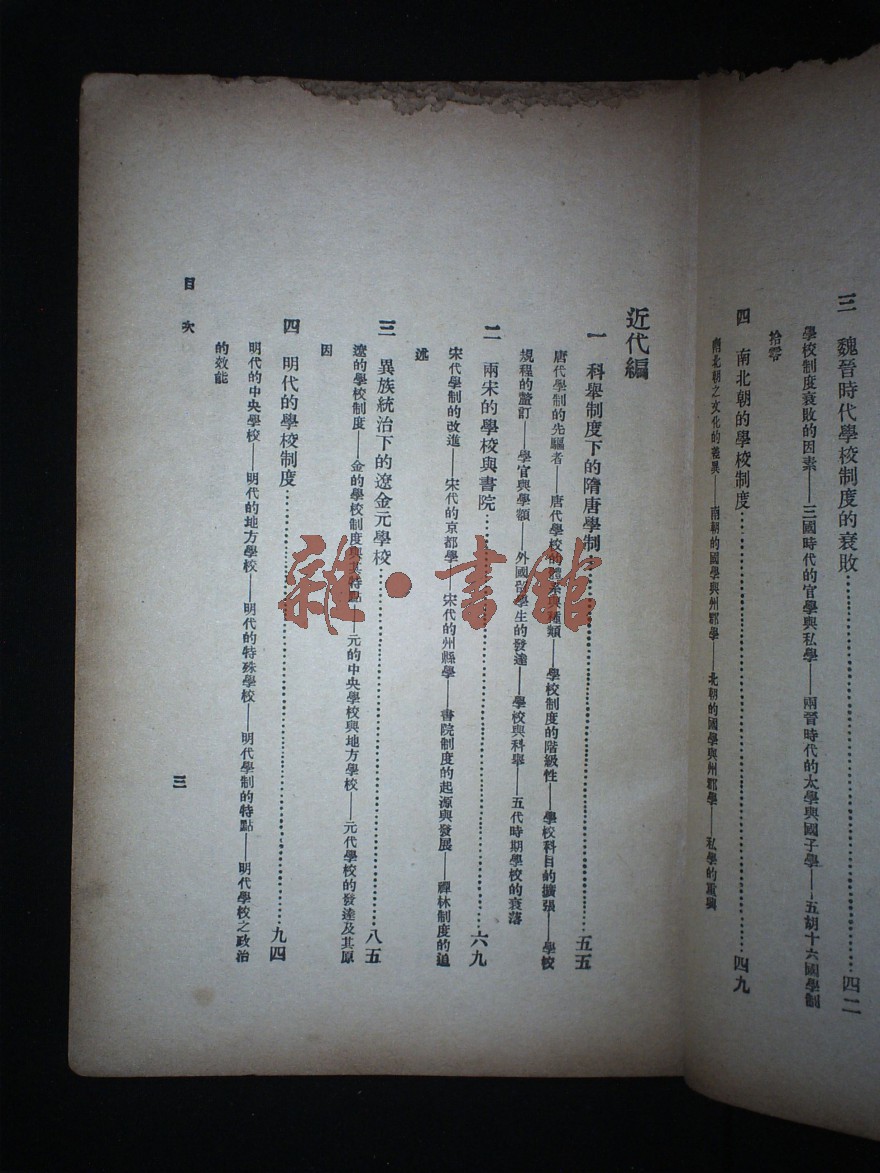 三　魏晉時代學校制度的衰敗…………四二
學校制度衰敗的因素——三國時代的官學與私學——兩晉時代的太學與國子學——五胡十六國學制
拾零
四　南北朝的學校制度…………四九
南北朝之文化的差異——南朝的國學與州郡學——北朝的國學與州郡學——私學的重興
近代編
一　科舉制度下的隋唐學制…………五五
唐代學制的先驅者——唐代學校的體系與種類——學校制度的階級性——學校科目的擴張——學校
規程的釐訂——學官與學額——外國留學生的發達——學校與科舉——五代時期學校的衰落
二　兩宋的學校與書院…………六九
宋代學制的改進——宋代的京都學——宋代的州縣學——書院制度的起源與發展——禪林制度的追
述
三　異族統治下的遼金元學校…………八五
遼的學校制度——金的學校制度與其特點——元的中央學校與地方學校——元代學校的發達及其原
因
四　明代的學校制度…………九四
明代的中央學校——明代的地方學校——明代的特殊學校——明代學制的特點——明代學校之政治
的效能
目次
三
雜·書館